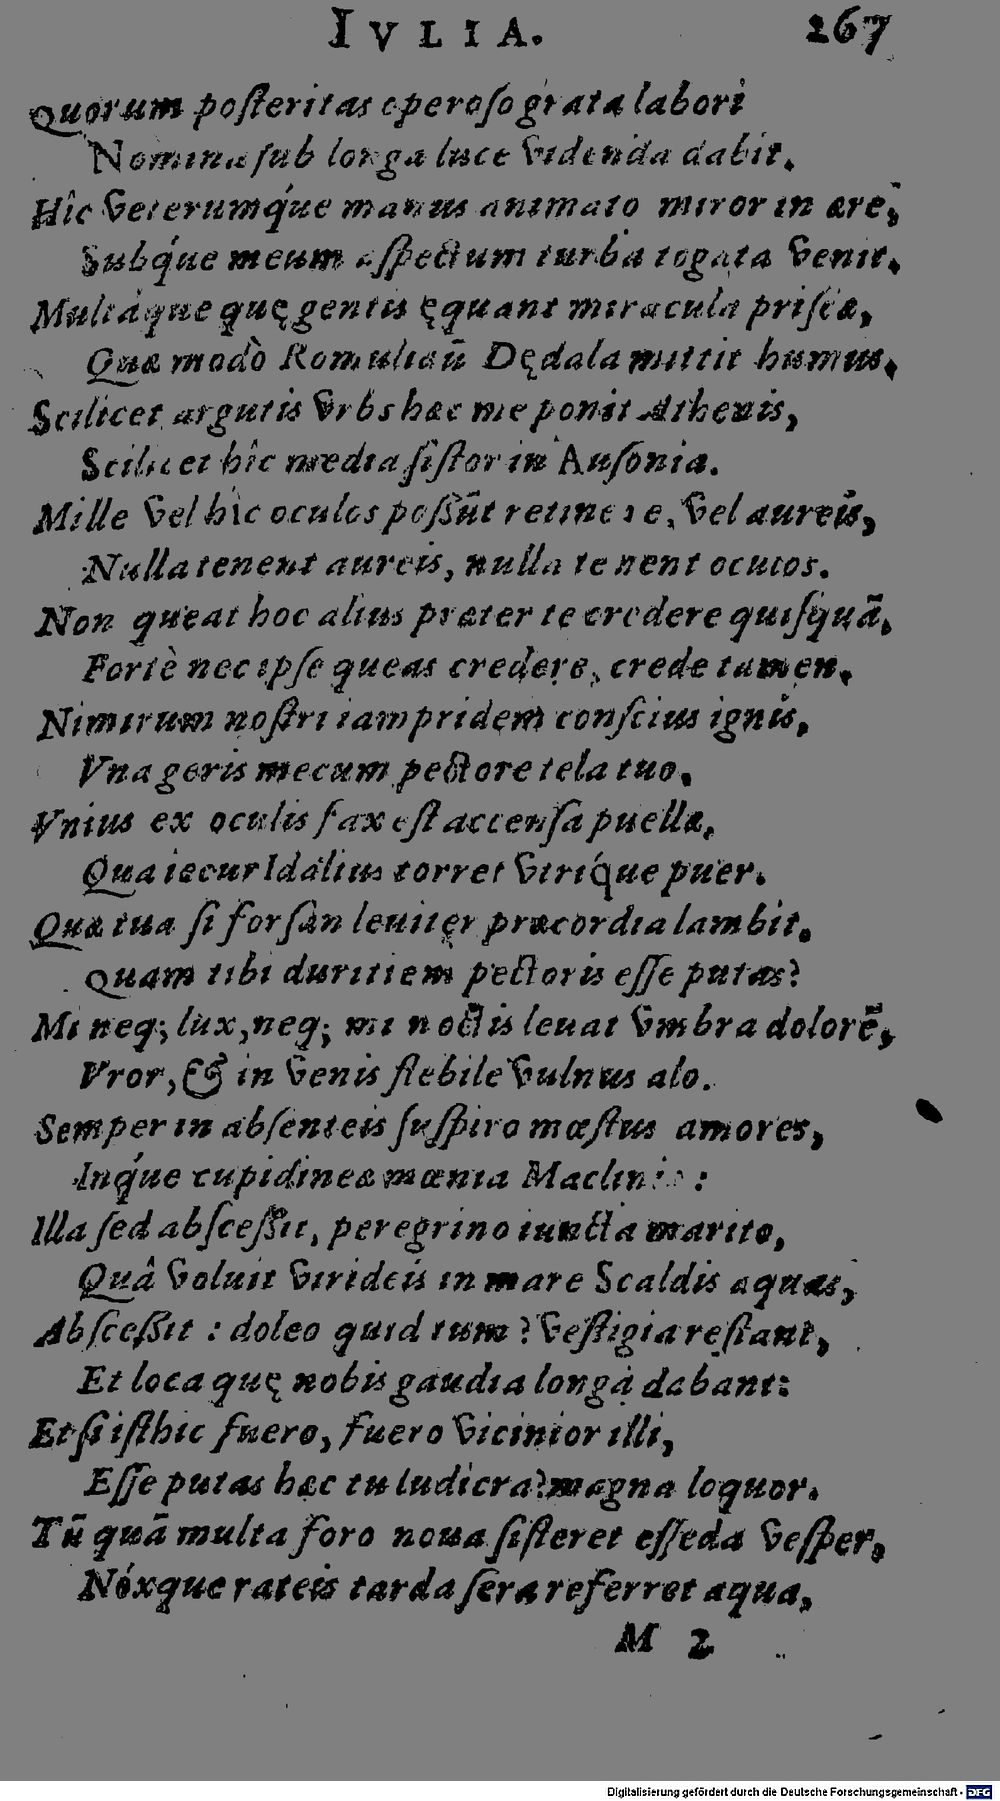 IVLIA. 267
Quorum posteritas operoso grata labori
Nomina sub longa luce videnda dabit.
Hîc veterumq́ue manus animato miror in ære,
Subq́ue meum aspectum turba togata venit.
Multáque quę gentis ęquant miracula priscæ,
Quæ modò Romulidaũ Dędala mittit humus.
Scilicet argutis vrbs hæc me ponit Athenis,
Scilicet hîc media sistor in Ausonia.
Mille vel hîc oculos possũt retinere, vel aureis,
Nulla tenent aureis, nulla tenent oculos.
Non queat hoc alius præter te credere quisquã,
Fortè nec ipse queas credere, crede tamen.
Nimirum nostri iampridem conscius ignis,
Vna geris mecum pectore tela tuo.
Vnius ex oculis fax est accensa puellæ,
Qua iecur Idalius torret vtriq́ue puer.
Quæ tua si forsàn leuiter præcordia lambit.
Quam tibi duritiem pectoris esse putas?
Mi neq; lux, neq; mi noctis leuat vmbra dolorẽ,
Vror, & in venis flebile vulnus alo.
Semper in absenteis suspiro mœstus amores,
Inq́ue cupidineæ mœnia :
Illa sed abscessit, peregrino iuncta marito,
Quâ voluit virideis in mare Scaldis aquas,
Abscessit : doleo quid tum? vestigia restant,
Et loca quę nobis gaudia longa dabant:
Et si isthic fuero, fuero vicinior illi,
Esse putas hæc tu ludicra? magna loquor.
Tũ quã multa foro noua sisteret esseda vesper,
Nóxque rateis tarda sera referret aqua,
M 2
Digitalisierung gefördert durch die Deutsche Forschungsgemeinschaft - DFG